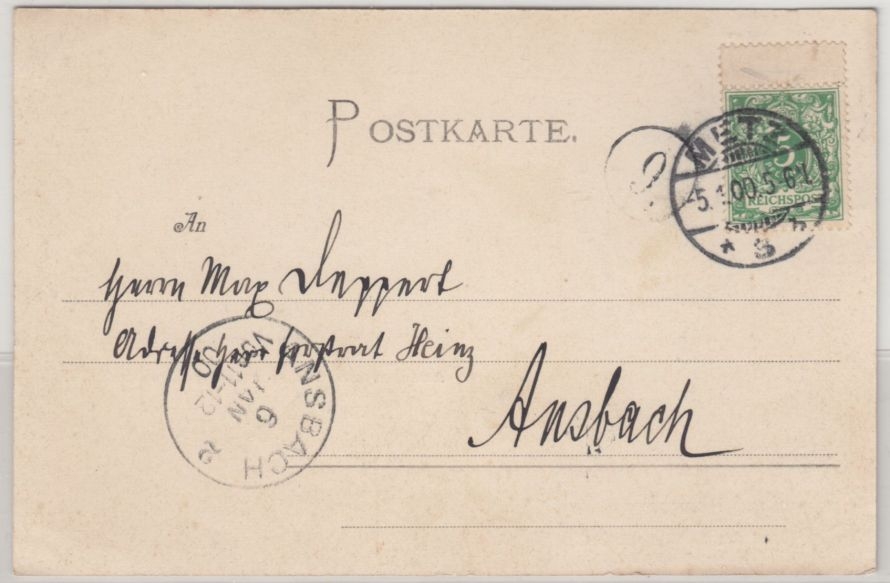 POSTKARTE.
METZ
5.1.00.5-6N.
* 3 *
5
REICHSPOST
An
Herrn Max Deppert
Adresse Herr Forstrat Heinz
Ansbach
ANSBACH
6
JAN
VOR.11-12
00